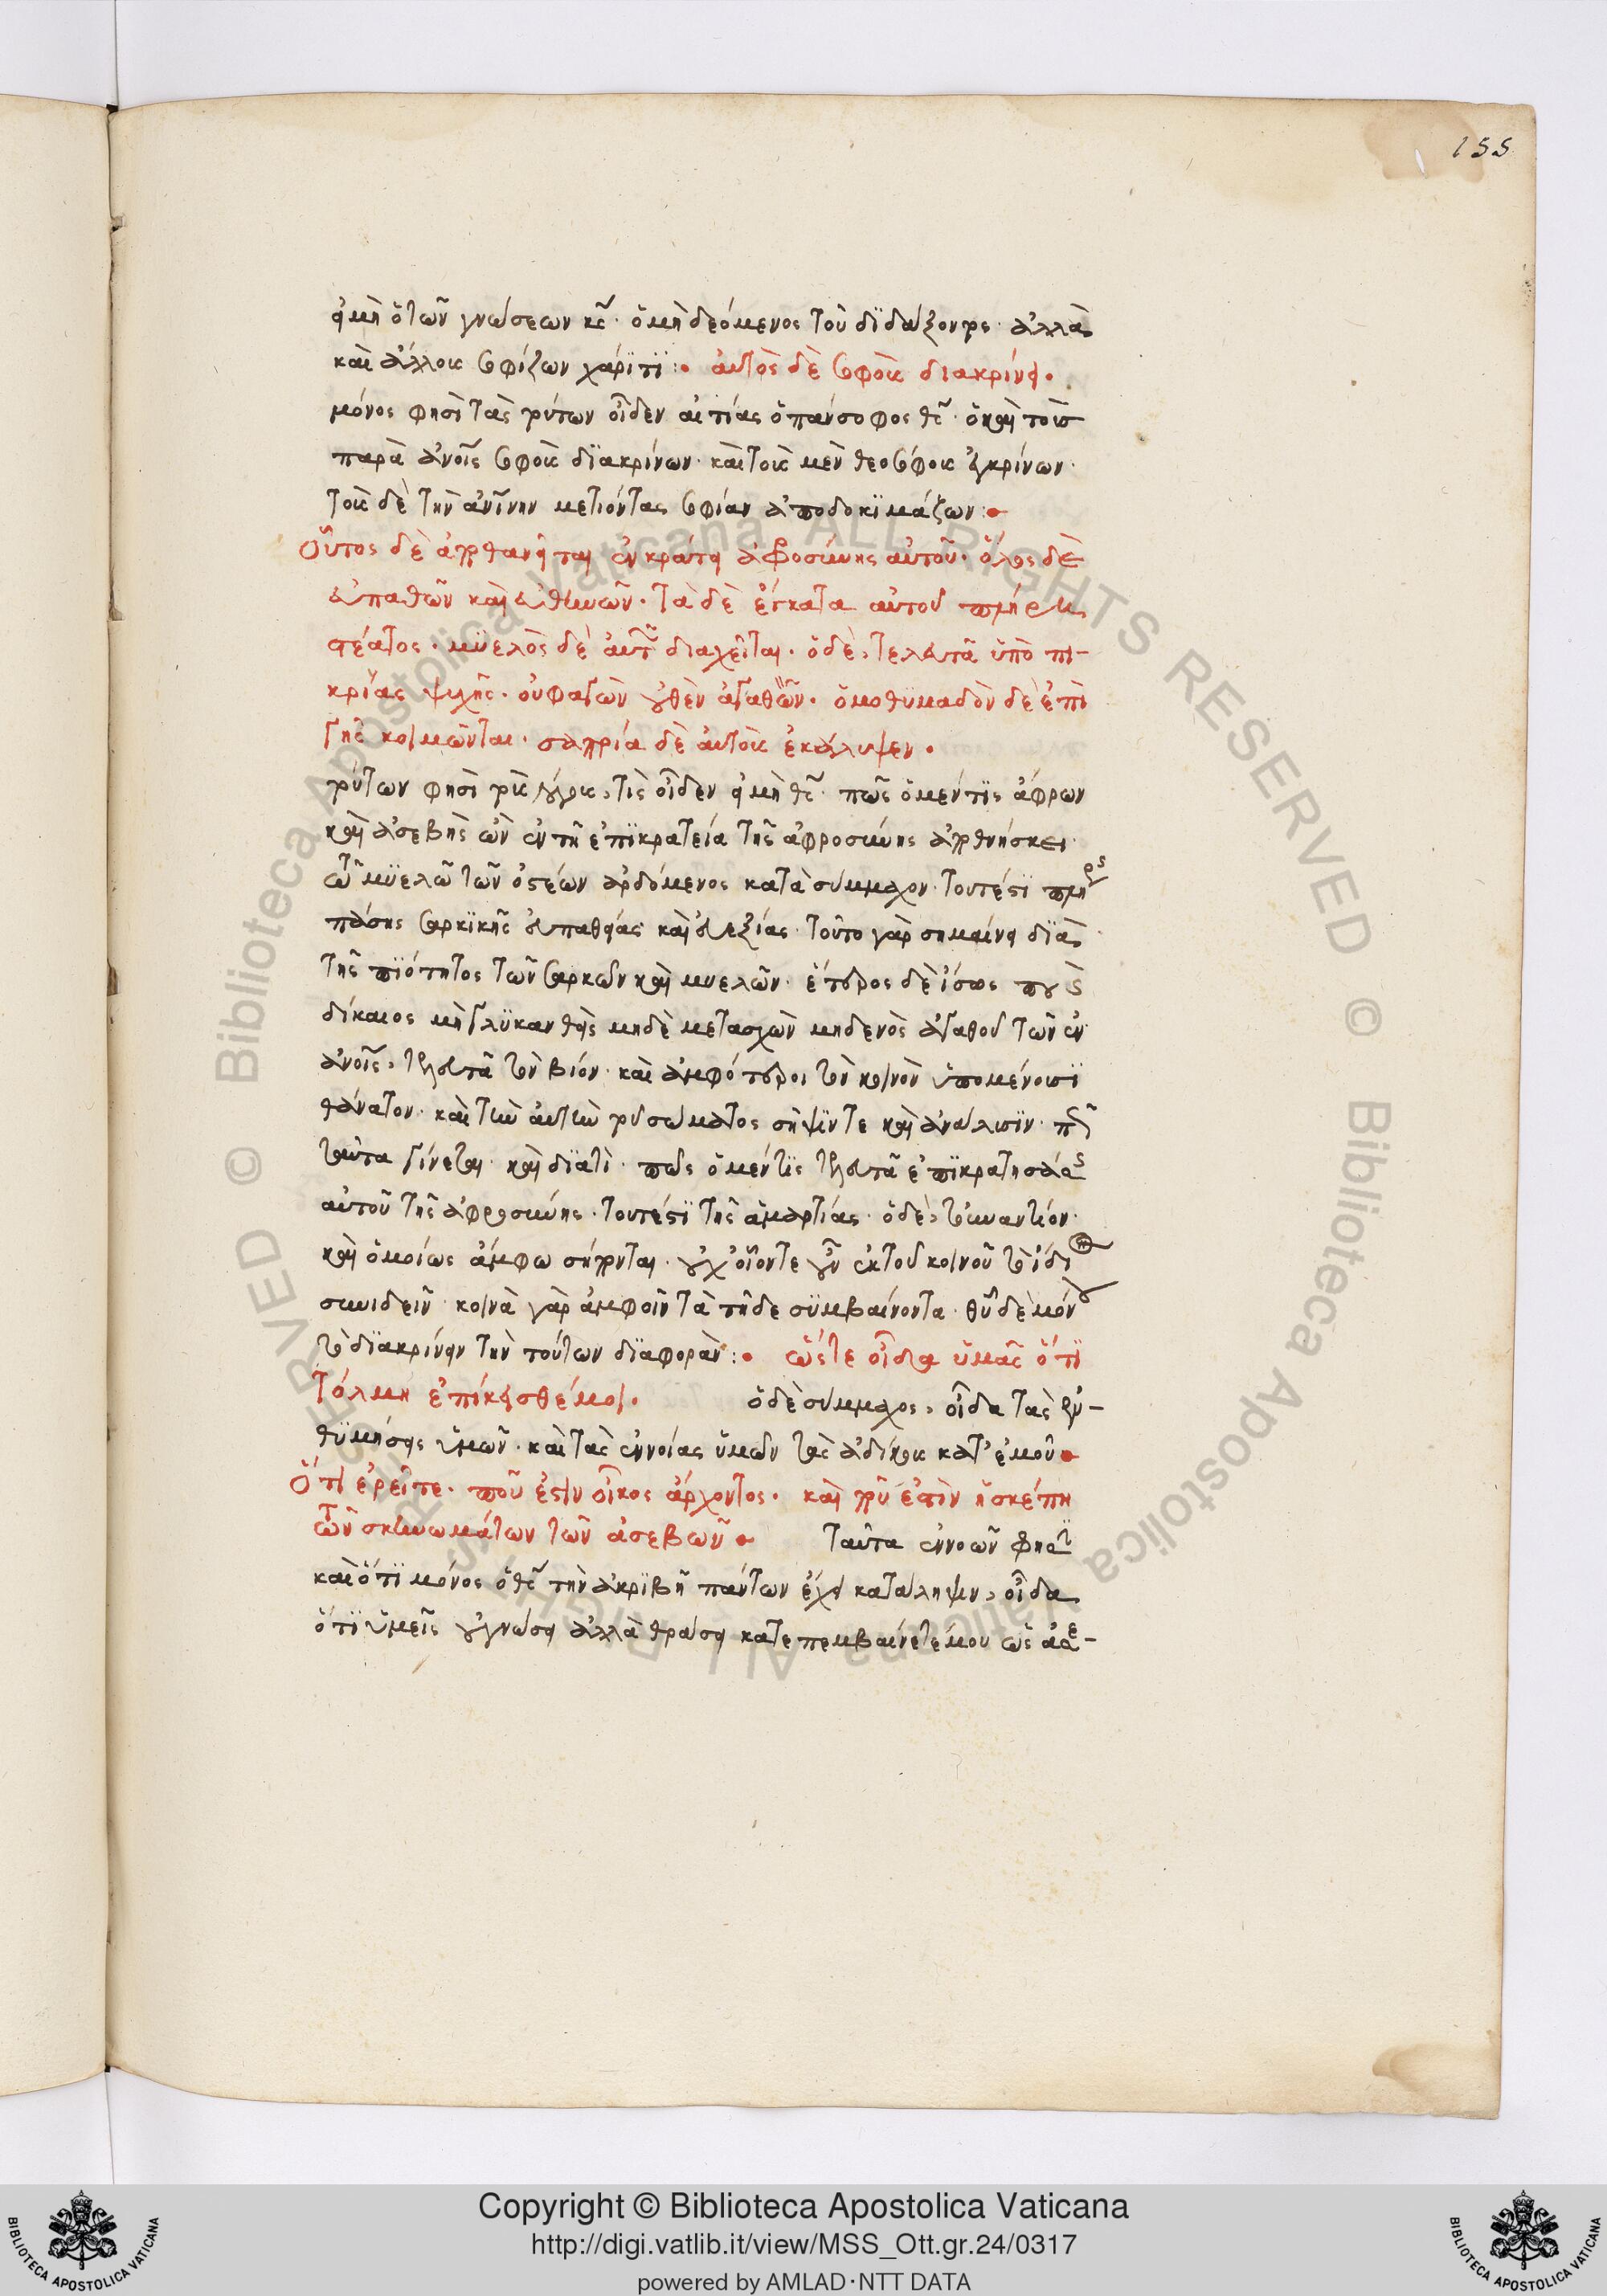 155
εἰ μὴ ὁ τῶν γνώσεων κ̅ς̅· ὁ μὴ δεόμενος τοῦ διδάξοντος· ἀλλὰ
καὶ ἄλλους σοφίζων χάριτι:· αὐτὸς δὲ σοφοὺς διακρίνει·
μόνος φησὶ τὰς τούτων οἶδεν αἰτίας ὁ πάνσοφος θ̅ς̅· ὁ καὶ τοὺς
παρὰ ἀνοις σοφοὺς διακρίνων· καὶ τοὺς μὲν θεοσόφους ἐγκρίνων·
τοὺς δὲ τὴν ἀνίνην μετιόντας σοφίαν ἀποδοκιμάζων:·
Οὗτος δὲ ἀποθανεῖται ἐν κράτει ἀφροσύνης αὐτοῦ· ὅλος δὲ
εὐπαθῶν καὶ εὐθηνῶν· τὰ δὲ ἔγκατα αὐτοῦ πλήρη
στέατος· μυελὸς δὲ αὐτοῦ διαχεῖται· ὁ δὲ, τελευτᾶ ὑπὸ πι-
κρίας ψυχῆς· οὐ φαγὼν οὐθὲν ἀγαθὸν· ὁμοθυμαδὸν δὲ ἐπὶ
γῆς κοιμῶνται· σαπρία δὲ αὐτοὺς ἐκάλυψεν·
τούτων φησὶ τοὺς λόγους, τίς οἶδεν εἰ μὴ θ̅ς̅· πῶς ὁ μέν τις ἄφρων
καὶ ἀσεβὴς ὢν ἐν τῇ ἐπικρατεία τῆς ἀφροσύνης ἀποθνήσκει·
τῶ μυελῶ τῶν ὀστέων ἀρδόμενος κατὰ σύμμαχον· τουτέστι πλήρης
πάσης σαρκικῆς εὐπαθείας καὶ εὐεξίας· τοῦτο γὰρ σημαίνει διὰ
τῆς πιότητος τῶν σαρκῶν καὶ μυελῶν· ἕτερος δὲ ἴσως που
δίκαιος μὴ γλυκανθεὶς μηδὲ μετασχὼν μηδενὸς ἀγαθοῦ τῶν ἐν
ἀνοις, τελευτᾶ τὸν βίον· καὶ ἀμφότεροι τὸν κοινὸν ὑπομένουσι
θάνατον· καὶ τὴν αὐτὴν τοῦ σώματος σῆψιν τε καὶ ἀνάλυσιν·
ταῦτα γίνεται· καὶ διατὶ· πῶς ὁ μέν τις τελευτᾶ ἐπικρατησάσης
αὐτοῦ τῆς ἀφροσύνης· τουτέστι τῆς ἁμαρτίας· ὁ δὲ, τοὐναντίον·
καὶ ὁμοίως ἄμφω σήπονται· οὐχ οἷόντε οὖν ἐκ τοῦ κοινοῦ τὸ ἴδιον
συνιδεῖν· κοινὰ γὰρ ἀμφοῖν τὰ τῇδε συμβαίνοντα· θ̅υ̅ δὲ μόνου
τὸ διακρίνειν τὴν τούτων διαφορὰν:· ὥστε οἶδα ὑμᾶς ὅτι
τόλμη ἐπίκεισθέ μοι· ὁ δὲ σύμμαχος, οἶδα τὰς ἐν-
θυμήσεις ὑμῶν· καὶ τὰς ἐννοίας ὑμῶν τὰς ἀδίκους κατ' ἐμοῦ·
Ὅτι ἐρεῖτε· ποῦ ἐστὶν οἶκος ἄρχοντος· καὶ ποῦ ἐστὶν ἡ σκέπη
τῶν σκηνωμάτων τῶν ἀσεβῶν· ταῦτα ἐννοῶν φησὶ
καὶ ὅτι μόνος ὁ θ̅ς̅ τὴν ἀκριβῆ πάντων ἔχει κατάληψιν, οἶδα
ὅτι ὑμεῖς οὐ γνώσει ἀλλὰ θράσει κατεπεμβαίνετέ μου ὡς ἀσε-
Copyright © Biblioteca Apostolica Vaticana
http://digi.vatlib.it/view/MSS_Ott.gr.24/0317
powered by AMLAD·NTT DATA